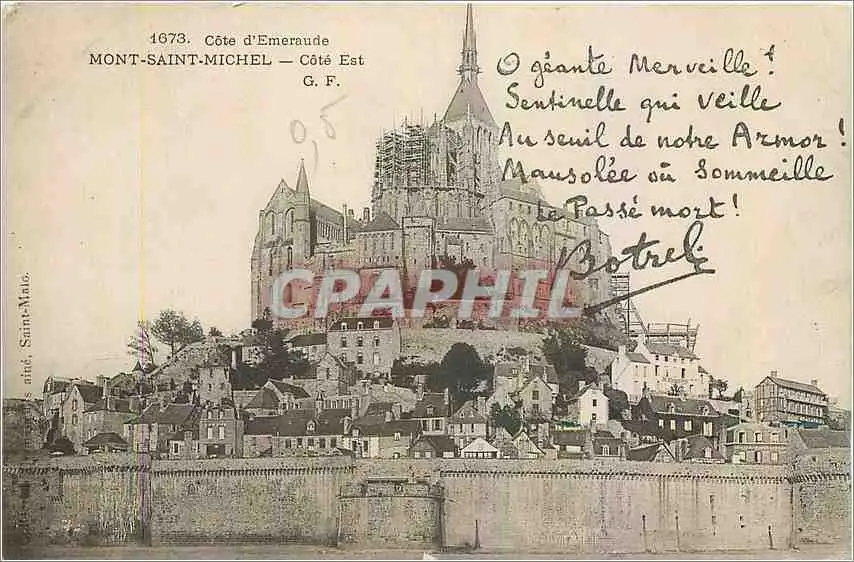 1673. Côte d'Emeraude
MONT-SAINT-MICHEL — Côté Est
G. F.
O géante Merveille !
Sentinelle qui veille
Au seuil de notre Armor !
Mausolée où Sommeille
Le Passé mort !
Botrel
CPAPHIL
aîné, Saint-Malo.